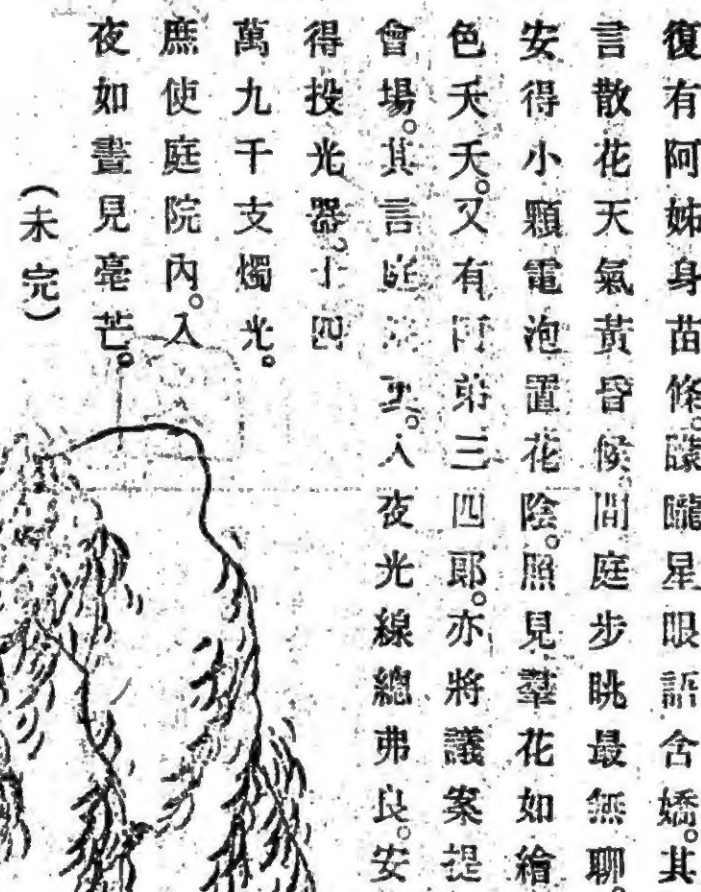 復有阿姊身苗條。矇矓星眼語含嬌。其
言散花天氣黃昏候。間庭步眺最無聊。
安得小顆電泡置花陰。照見羣花如繪
色夭夭。又有阿弟三四郎。亦將議案提
會場。其言庭 入夜光線總弗良。安
得投光器。十四
萬九千支燭光。
庶使庭院內。入
夜如晝見毫芒。
（未完）